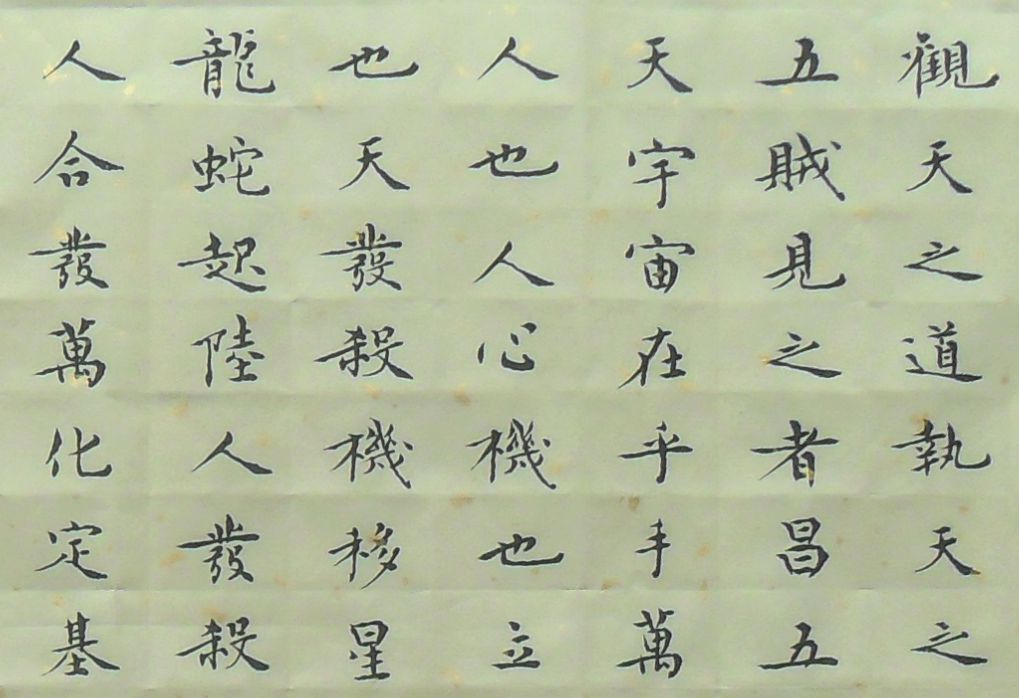 觀天之道執天之
五賊見之者昌五
天宇宙在乎手萬
人也人心機也立
也天發殺機移星
龍蛇起陸人發殺
人合發萬化定基